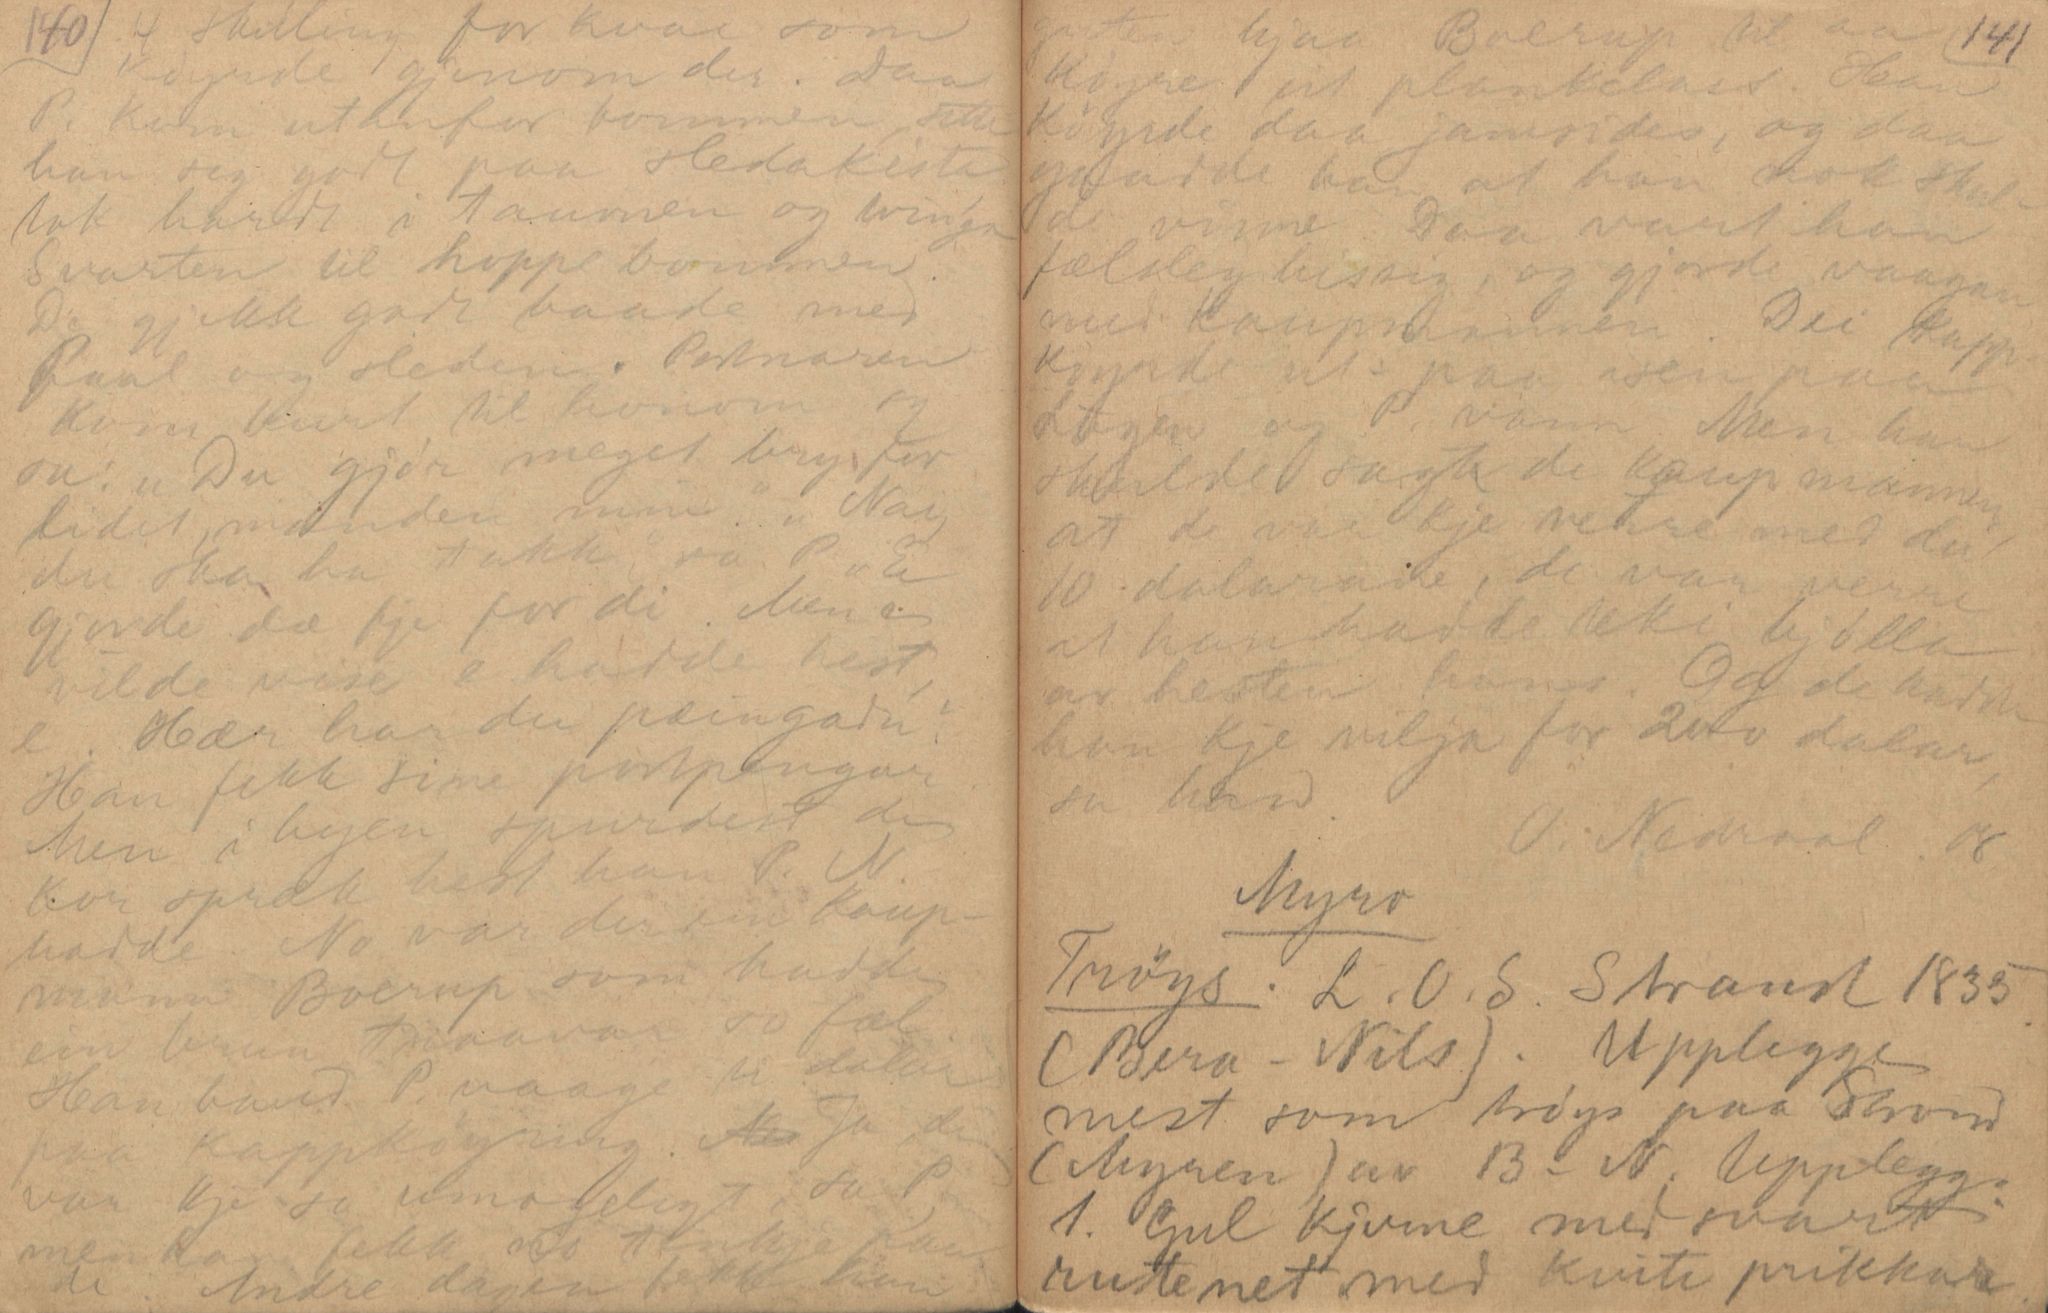 140) 4 skilling for kvar som
köyrde gjenom der. Daa
P. kom utanfor bommen, sette
han seg godt paa sledakista
tok hardt i taumen og tvinga
Svarten til hoppe bommen.
De gjekk godt baade med
Paal og sleden. Portnaren
kom burt til honom og
sa: „Du gjör meget bry for
lidet, manden min." „Nai,
du ska ha takk" sa P. „E
gjorde dæ kje for di. Men e
vilde vise e hadde hest,
e. Hær har du pæingadn".
Han fekk sine portpengar.
Men i byen spurdest de
kor spræk hest han P. N.
hadde. No var der ein kaup-
mann Boerup som hadde
ein brun travar so fæl.
Han baud P. vaage ti dalar
paa kappköyring. Ja, de
var kje so umogelegt, sa P.
men han fekk no tenkje paa
de. Andre dagen fekk han
141
guten hjaa Boerup til aa
köyre ut plankelass. Han
köyrde daa jamsides, og daa
gaadde han at han nok skul-
de vinne. Daa vart han
fæleleg hissig, og gjorde vaagan
med kaupmannen. Dei kapp-
köyrde ut paa isen paa
Laagen og P. vann. Men han
skulde sagt de kaupmannen,
at de var kje verre med dei
10 dalarane, de var verre
at han hadde teki bjölla
av hesten hans. Og de hadde
han kje vilja for 200 dalar,
sa han.
O. Nedraal. 08
Myro
Tröys. L. O. S. Strand 1835.
(Bera-Nils). Upplegge
mest som tröys paa Strond
(Myren) av B-N. Upplegg.
1. Gul kjvrne med svart
rutenet med kvite prikkar.